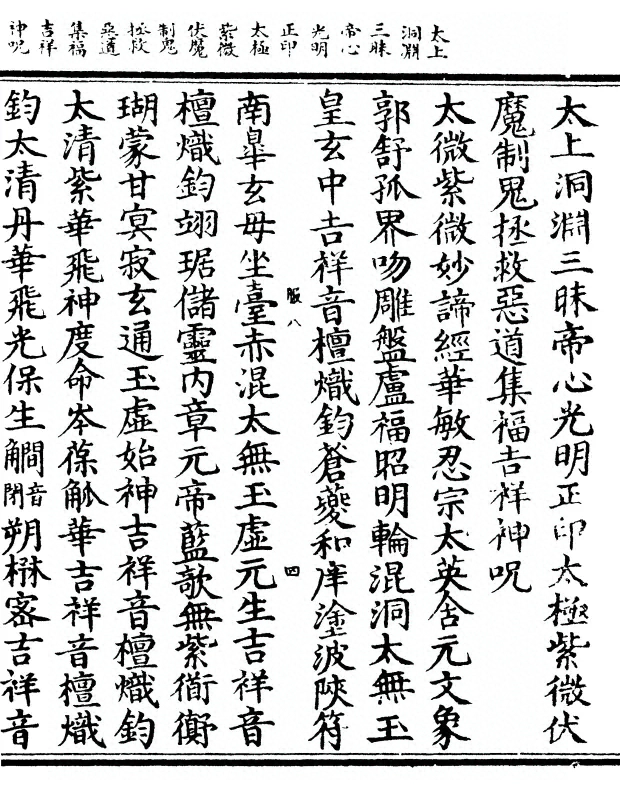 太上
洞淵
三昧
帝心
光明
正印
太極
紫微
伏魔
制鬼
拯救
惡道
集福
吉祥
神呪
太上洞淵三昧帝心光明正印太極紫微伏
魔制鬼拯救惡道集福吉祥神呪
太微紫微妙諦經華敏忍宗太英舍元文象
郭舒孤界吻雕盤盧福昭明輪混洞太無玉
皇玄中吉祥音檀熾鈞蒼夔和庠塗波陝符
服八 四
南皐玄毋坐臺赤混太無玉虛元生吉祥音
檀熾鈞翊琚儲靈内章元帝藍歌無紫衡
瑚蒙甘冥寂玄通玉虛始神吉祥音檀熾鈞
太清紫華飛神度命岑葆觚華吉祥音檀熾
鈞太清丹華飛光保生音閉朔楙宻吉祥音